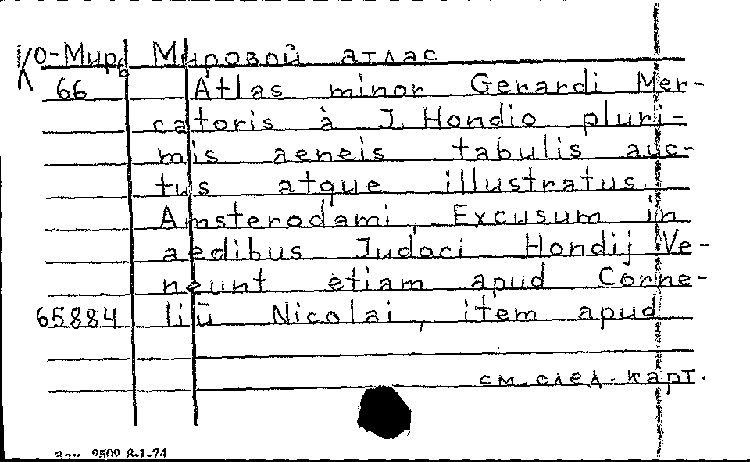 Ко-Мир Мировой атлас
66 Atlas minor Gerardi Mer-
catoris à J. Hondio pluri-
mis aeneis tabulis auc-
tus atque illustratus.
Amsterodami, Excusum in
aedibus Judoci Hondij Ve-
neunt etiam apud Corne-
65884 liū Nicolai, item apud
см. след. карт.
Зак. 9509 8-1-74